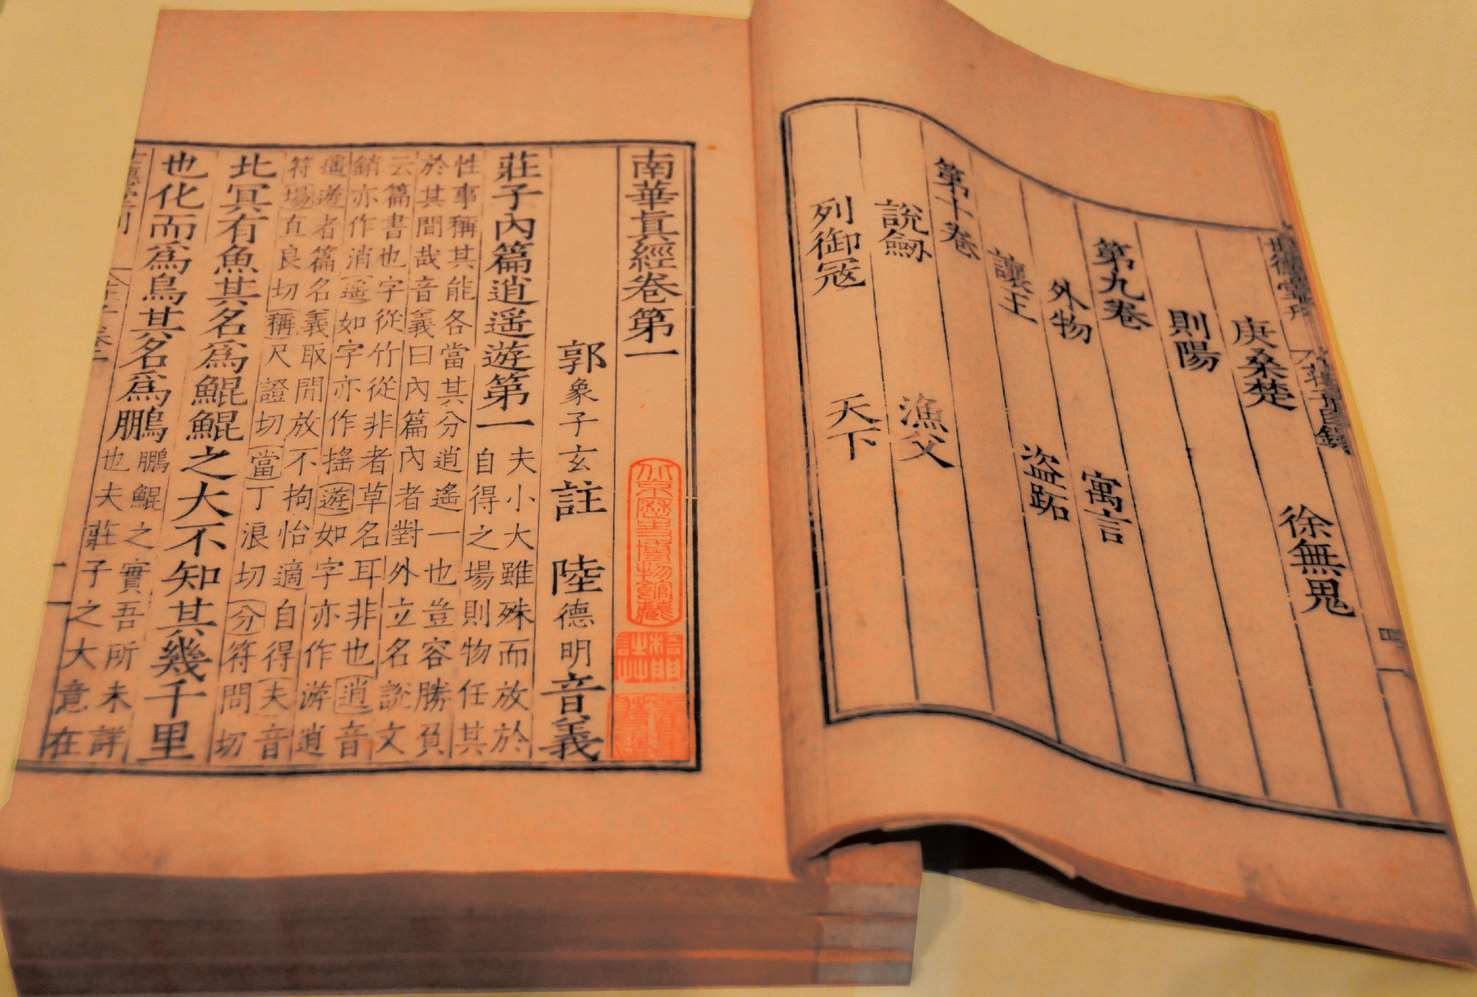 莊子目錄
庚桑楚 徐無鬼
則陽
第九卷
外物 寓言
讓王 盜跖
第十卷
說劔 漁父
列御冦 天下
南華真經卷第一
北京歷史博物館藏
郭象子玄註 陸德明音義
莊子內篇逍遙遊第一
夫小大雖殊而放於
自得之場則物任其
性事稱其能各當其分逍遙一也豈容勝負
於其間哉音義曰內篇內者對外立名說文
云篇書也字從竹從非者草名耳非也逍音
銷亦作消遙如字亦作搖遊如字亦作游逍
遙遊者篇名義取閒放不拘怡適自得夫音
符場直良切稱尺證切當丁浪切分符問切
北冥有魚其名爲鯤鯤之大不知其幾千里
也化而爲鳥其名爲鵬
鵬鯤之實吾所未詳
也夫莊子之大意在